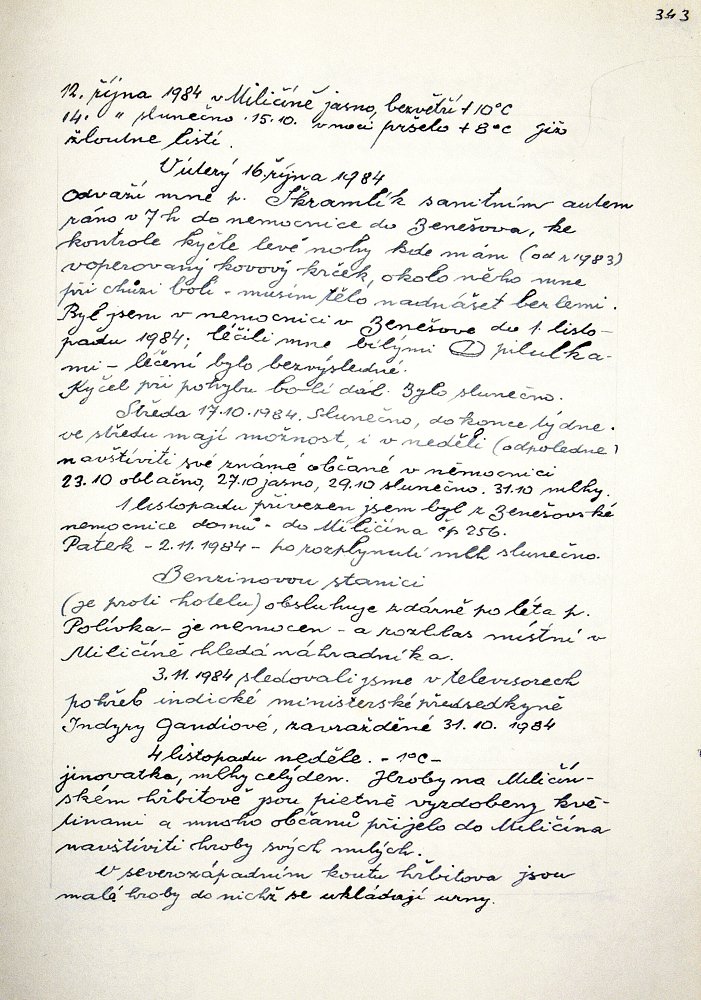 343
12. října 1984 v Miličíně jasno, bezvětří + 10°C
14. " slunečno. 15.10. v noci pršelo + 8°C již
žloutne listí.
V úterý 16. října 1984
odvaží mne p. Škramlík sanitním autem
ráno v 7 h do nemocnice do Benešova, ke
kontrole kyčle levé nohy kde mám (od r 1983)
voperovaný kovový krček, okolo něho mne
při chůzi bolí - musím tělo nadnášet berlemi.
Byl jsem v nemocnici v Benešově do 1. listo-
padu 1984; léčili mne bílými pilulka-
mi - léčení bylo bezvýsledné.
Kyčel při pohybu bolí dál. Bylo slunečno.
Středa 17.10.1984. Slunečno, do konce týdne.
ve středu mají možnost, i v neděli (odpoledne)
navštíviti své známé občané v nemocnici
23.10 oblačno, 27.10 jasno, 29.10 slunečno. 31.10 mlhy.
1 listopadu přivezen jsem byl z Benešovské
nemocnice domů - do Miličína čp 256.
Pátek - 2.11.1984 - po rozplynutí mlh slunečno.
Benzinovou stanici
(je proti hotelu) obsluhuje zdárně po léta p.
Polívka - je nemocen - a rozhlas místní v
Miličíně hledá náhradníka.
3.11.1984 sledovali jsme v televisorech
pohřeb indické ministerské předsedkyně
Indyry Gandiové, zavražděné 31.10. 1984
4 listopadu neděle. - 1°C -
jinovatka, mlhy celý den. Hroby na Miličín-
ském hřbitově jsou pietně vyzdobeny kvě-
tinami a mnoho občanů přijelo do Miličína
navštíviti hroby svých milých.
V severozápadním koutu hřbitova jsou
malé hroby do nichž se ukládají urny.